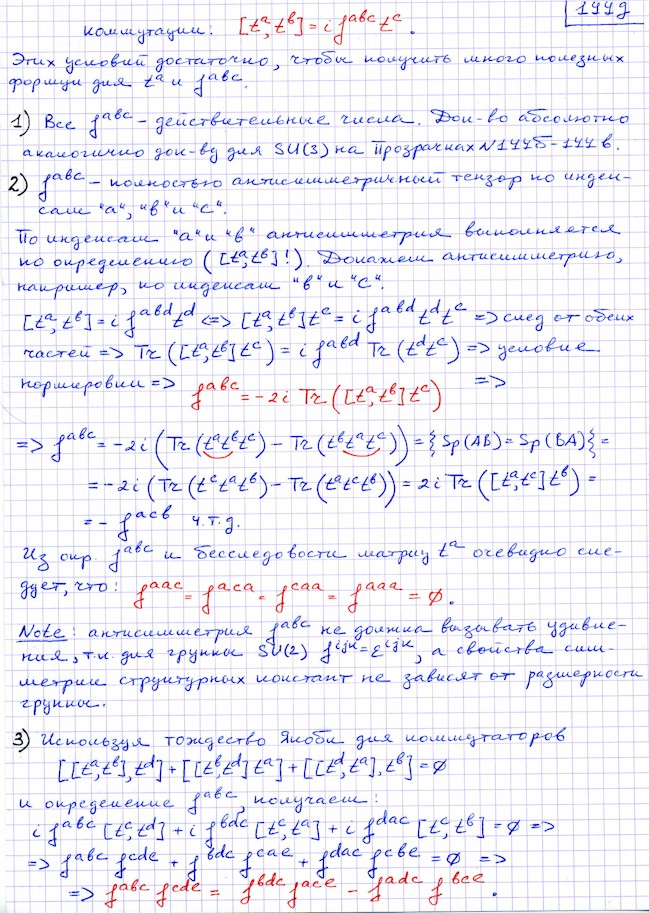 144д
коммутации: [tᵃ, tᵇ] = i fᵃᵇᶜ tᶜ.
Этих условий достаточно, чтобы получить много полезных
формул для tᵃ и fᵃᵇᶜ.
1) Все fᵃᵇᶜ – действительные числа. Док-во абсолютно
аналогично док-ву для SU(3) на Прозрачках №144б-144в.
2) fᵃᵇᶜ – полностью антисимметричный тензор по индек-
сам "а", "в" и "с".
По индексам "а" и "в" антисимметрия выполняется
по определению ([tᵃ, tᵇ]!). Докажем антисимметрию,
например, по индексам "в" и "с".
[tᵃ, tᵇ] = i fᵃᵇᵈ tᵈ <=> [tᵃ, tᵇ] tᶜ = i fᵃᵇᵈ tᵈ tᶜ => след от обеих
частей => Tr([tᵃ, tᵇ] tᶜ) = i fᵃᵇᵈ Tr(tᵈ tᶜ) => условие
нормировки => fᵃᵇᶜ = -2i Tr([tᵃ, tᵇ] tᶜ) =>
=> fᵃᵇᶜ = -2i (Tr(tᵃ tᵇ tᶜ) - Tr(tᵇ tᵃ tᶜ)) = {Sp(AB) = Sp(BA)} =
= -2i (Tr(tᶜ tᵃ tᵇ) - Tr(tᵃ tᶜ tᵇ)) = 2i Tr([tᵃ, tᶜ] tᵇ) =
= - fᵃᶜᵇ ч.т.д.
Из опр. fᵃᵇᶜ и бесследовости матриц tᵃ очевидно сле-
дует, что: fᵃᵃᶜ = fᵃᶜᵃ = fᶜᵃᵃ = fᵃᵃᵃ = ∅.
Note: антисимметрия fᵃᵇᶜ не должна вызывать удивле-
ния, т.к. для группы SU(2) fⁱʲᵏ = εⁱʲᵏ, а свойства сим-
метрии структурных констант не зависят от размерности
группы.
3) Используя тождество Якоби для коммутаторов
[[tᵃ, tᵇ], tᵈ] + [[tᵇ, tᵈ] tᵃ] + [[tᵈ, tᵃ], tᵇ] = ∅
и определение fᵃᵇᶜ, получаем:
i fᵃᵇᶜ [tᶜ, tᵈ] + i fᵇᵈᶜ [tᶜ, tᵃ] + i fᵈᵃᶜ [tᶜ, tᵇ] = ∅ =>
=> fᵃᵇᶜ fᶜᵈᵉ + fᵇᵈᶜ fᶜᵃᵉ + fᵈᵃᶜ fᶜᵇᵉ = ∅ =>
=> fᵃᵇᶜ fᶜᵈᵉ = fᵇᵈᶜ fᵃᶜᵉ - fᵃᵈᶜ fᵇᶜᵉ.